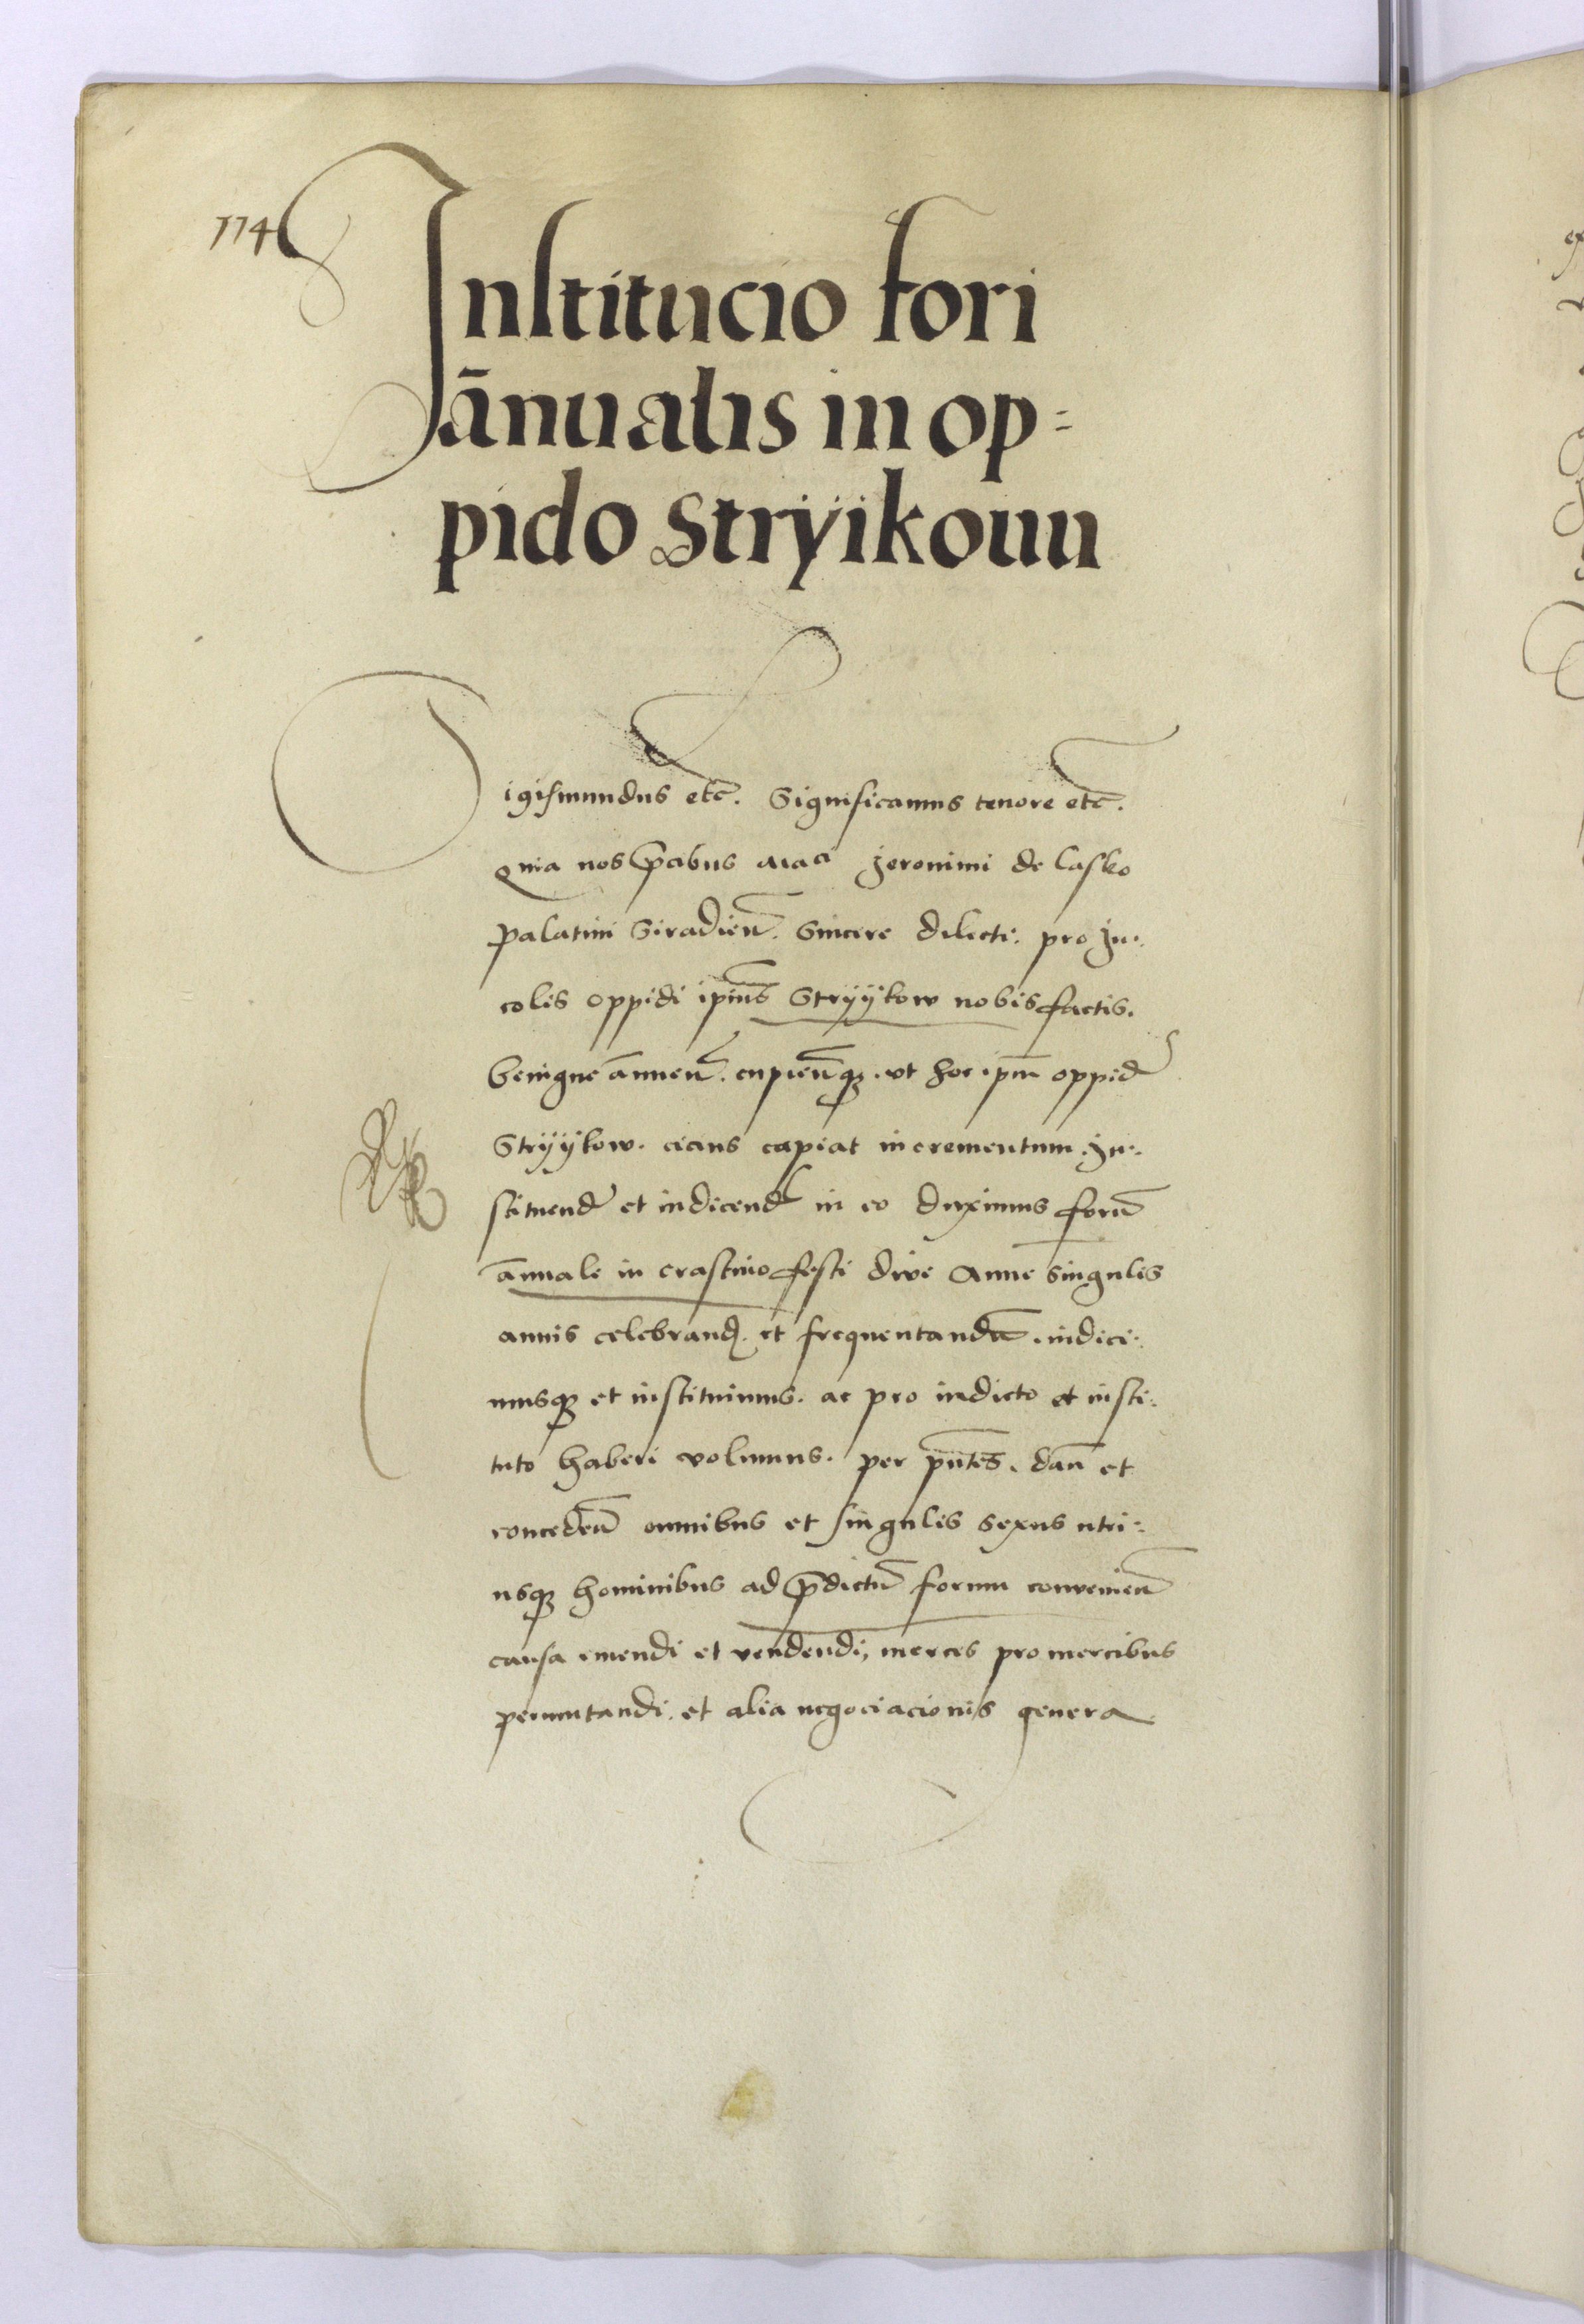 174
Institucio fori
ānualis in op=
pido Stryikouu
Sigismundus etc̄. Significamus tenore etc̄.
Quia nos p̄cibus Jeronimi de Lasko
palatini Siradien̄. Sincere dilecti. pro In:
colis oppidi ip̄ius Stryÿkow nobis factis.
benigne annuen̄. cupien̄qꝫ. vt hoc ip̄m oppid
Stryÿkow. cicius capiat incrementum. In:
stituend et indicend in eo duximus forū
ānuale in crastino festi dive Anne singulis
annis celebrand. et frequentandū. indici:
musqꝫ et instituimus. ac pro indicto et insti:
tuto haberi volumus. per pn̄tes. dan̄ et
conceden̄ omnibus et singulis sexus utri:
usqꝫ hominibus ad p̄dictū forum convenien̄
causa emendi et vendendi, merces pro mercibus
permutandi. et alia negociacionis genera